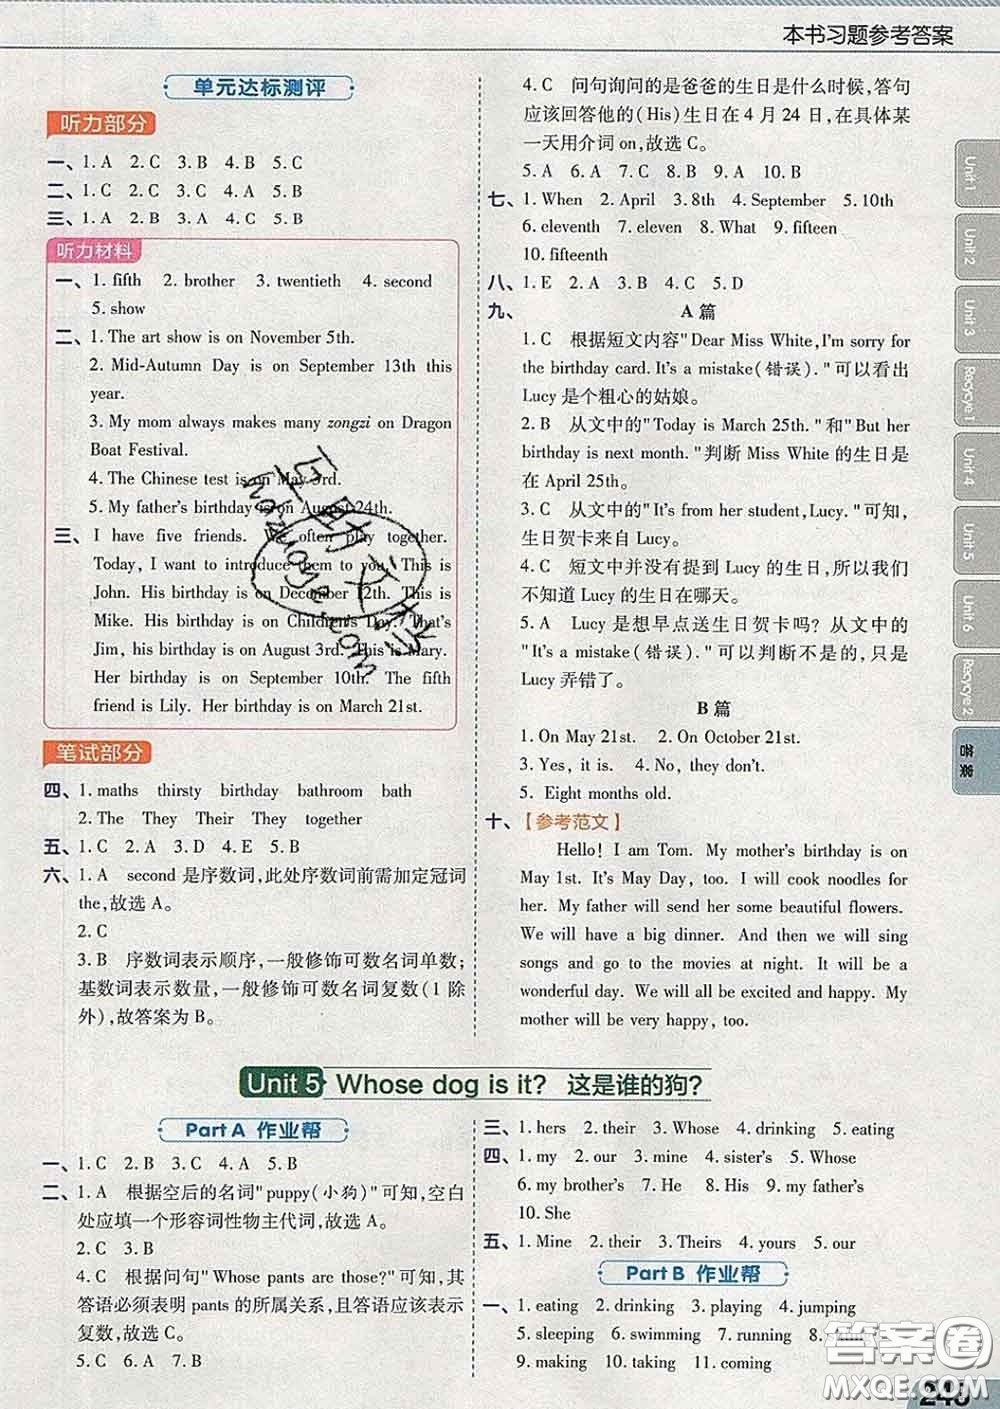 本书习题参考答案
单元达标测评
听力部分
一、1. A 2. C 3. B 4. B 5. C
二、1. C 2. B 3. C 4. A 5. B
三、1. A 2. B 3. A 4. C 5. B
听力材料
一、1. fifth 2. brother 3. twentieth 4. second
5. show
二、1. The art show is on November 5th.
2. Mid-Autumn Day is on September 13th this
year.
3. My mom always makes many zongzi on Dragon
Boat Festival.
4. The Chinese test is on May 3rd.
5. My father's birthday is on August 24th.
三、I have five friends. We often play together.
Today, I want to introduce them to you. This is
John. His birthday is on December 12th. This is
Mike. His birthday is on Children's Day. That's
Jim, his birthday is on August 3rd. This is Mary.
Her birthday is on September 10th. The fifth
friend is Lily. Her birthday is on March 21st.
笔试部分
四、1. maths thirsty birthday bathroom bath
2. The They Their They together
五、1. C 2. A 3. D 4. E 5. B
六、1. A second 是序数词,此处序数词前需加定冠词
the,故选 A。
2. C
3. B 序数词表示顺序,一般修饰可数名词单数;
基数词表示数量,一般修饰可数名词复数(1 除
外),故答案为 B。
4. C 问句询问的是爸爸的生日是什么时候,答句
应该回答他的(His)生日在 4 月 24 日,在具体某
一天用介词 on,故选 C。
5. A 6. A 7. C 8. B 9. A 10. B
七、1. When 2. April 3. 8th 4. September 5. 10th
6. eleventh 7. eleven 8. What 9. fifteen
10. fifteenth
八、1. E 2. A 3. B 4. C 5. D
九、A 篇
1. C 根据短文内容"Dear Miss White,I'm sorry for
the birthday card. It's a mistake(错误)."可以看出
Lucy 是个粗心的姑娘。
2. B 从文中的"Today is March 25th."和"But her
birthday is next month."判断 Miss White 的生日是
在 April 25th。
3. C 从文中的"It's from her student,Lucy."可知,
生日贺卡来自 Lucy。
4. C 短文中并没有提到 Lucy 的生日,所以我们
不知道 Lucy 的生日在哪天。
5. A Lucy 是想早点送生日贺卡吗? 从文中的
"It's a mistake(错误)."可以判断不是的,只是
Lucy 弄错了。
B 篇
1. On May 21st. 2. On October 21st.
3. Yes, it is. 4. No, they don't.
5. Eight months old.
十、【参考范文】
Hello! I am Tom. My mother's birthday is on
May 1st. It's May Day, too. I will cook noodles for
her. My father will send her some beautiful flowers.
We will have a big dinner. And then we will sing
songs and go to the movies at night. It will be a
wonderful day. We will all be excited and happy. My
mother will be very happy, too.
Unit 1
Unit 2
Unit 3
Recycye 1
Unit 4
Unit 5
Unit 6
Recycye 2
答案
Unit 5 Whose dog is it? 这是谁的狗?
Part A 作业帮
一、1. C 2. B 3. C 4. A 5. B
二、1. A 根据空后的名词"puppy(小狗)"可知,空白
处应填一个形容词性物主代词,故选 A。
2. C 3. B
4. C 根据问句"Whose pants are those?"可知,其
答语必须表明 pants 的所属关系,且答语应该表示
复数,故选 C。
5. C 6. A 7. B
三、1. hers 2. their 3. Whose 4. drinking 5. eating
四、1. my 2. our 3. mine 4. sister's 5. Whose
6. my brother's 7. He 8. His 9. my father's
10. She
五、1. Mine 2. their 3. Theirs 4. yours 5. our
Part B 作业帮
一、1. eating 2. drinking 3. playing 4. jumping
5. sleeping 6. swimming 7. running
9. making 10. taking 11. coming
答案圈
MXQE.COM
互助文档
hdzuoye.com